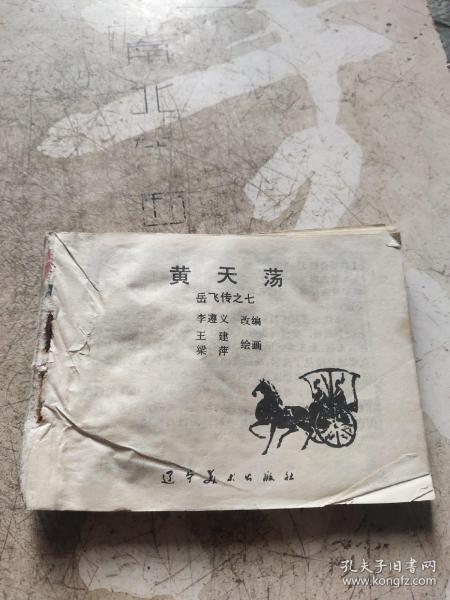 黄天荡
岳飞传之七
李遵义 改编
王建
梁萍 绘画
辽宁美术出版社
孔夫子旧书网
www.kongfz.com